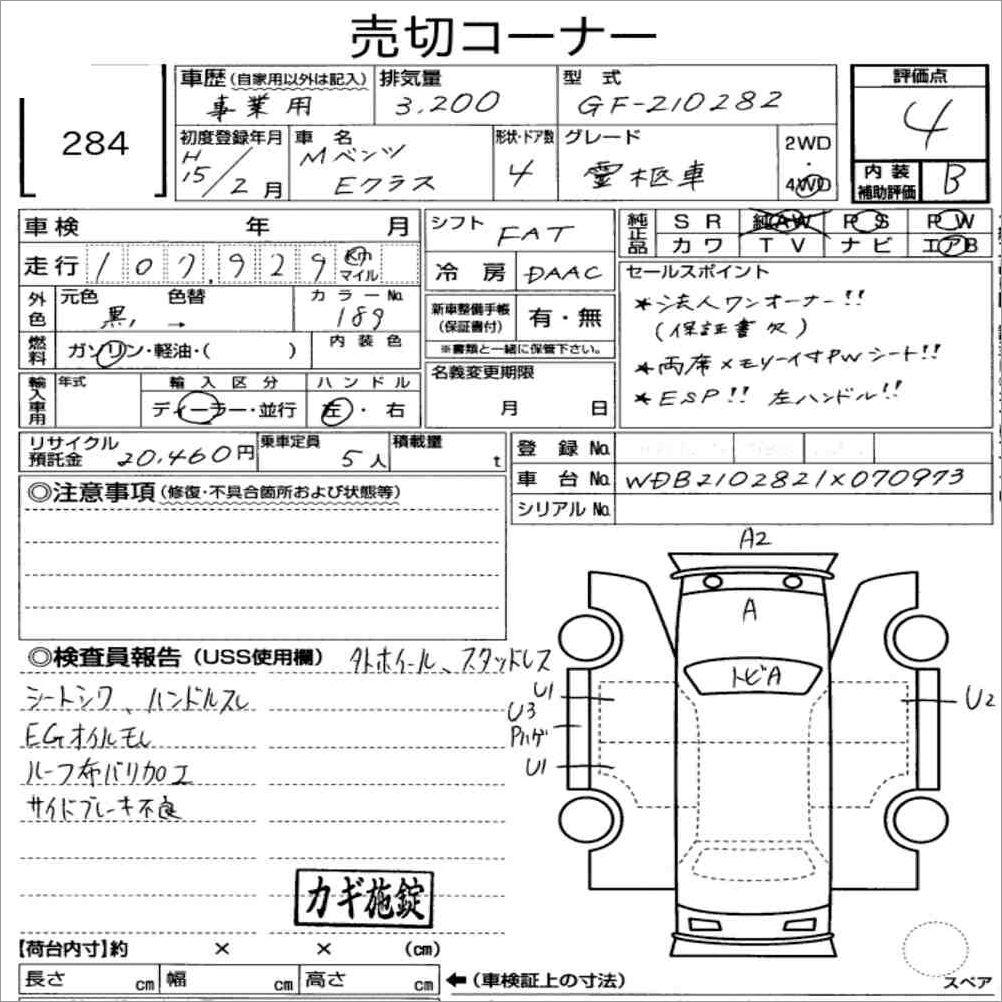 売切コーナー
284
車歴(自家用以外は記入) 排気量 型式 評価点
事業用 3,200 GF-210282 4
初度登録年月 車名 形状・ドア数 グレード 2WD・4WD 内装補助評価 B
H15/2月 Mベンツ Eクラス 4 霊柩車
車検 年 月 シフト FAT 純正品 SR 純AW PS PW
カワ TV ナビ エアB
走行 107,929 Km マイル 冷房 DAAC セールスポイント
外色 元色 色替 カラーNo. 新車整備手帳(保証書付) 有・無
黒, → 189 ※書類と一緒に保管下さい。
*法人ワンオーナー!!
(保証書欠)
*両席メモリー付PWシート!!
*ESP!! 左ハンドル!!
燃料 ガソリン・軽油・( ) 内装色 名義変更期限
月 日
輸入車用 年式 輸入区分 ハンドル
ディーラー・並行 左・右
リサイクル預託金 20,460円 乗車定員 5人 積載量 t 登録No.
車台No. WDB2102821X070973
シリアルNo.
◎注意事項(修復・不具合箇所および状態等)
◎検査員報告(USS使用欄) タトホイール、スタッドレス
シートシワ、ハンドルスレ
EGオイルモレ
ルーフ布バリ加工
サイドブレーキ不良
A2
A
トビA
U1
U3
Pハゲ
U1
U2
カギ施錠
【荷台内寸】約 × × (cm)
長さ cm 幅 cm 高さ cm ←(車検証上の寸法)
スペア